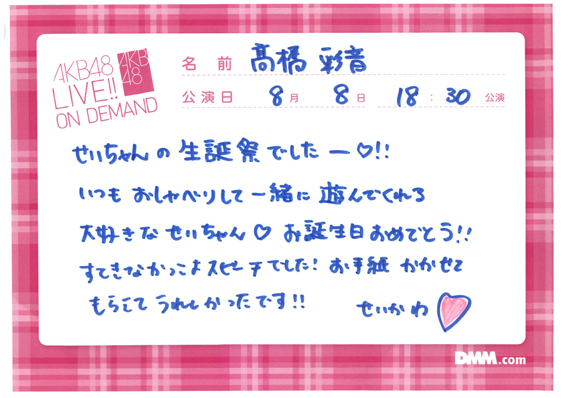 AKB48
LIVE!!
ON DEMAND
AKB
48
名前 髙橋 彩音
公演日 8月 8日 18:30 公演
せいちゃんの生誕祭でしたー♡!!
いつもおしゃべりして一緒に遊んでくれる
大好きなせいちゃん♡ お誕生日おめでとう!!
すてきなかっこよスピーチでした! お手紙 かかせて
もらえて うれしかったです!!
せいかわ
DMM.com